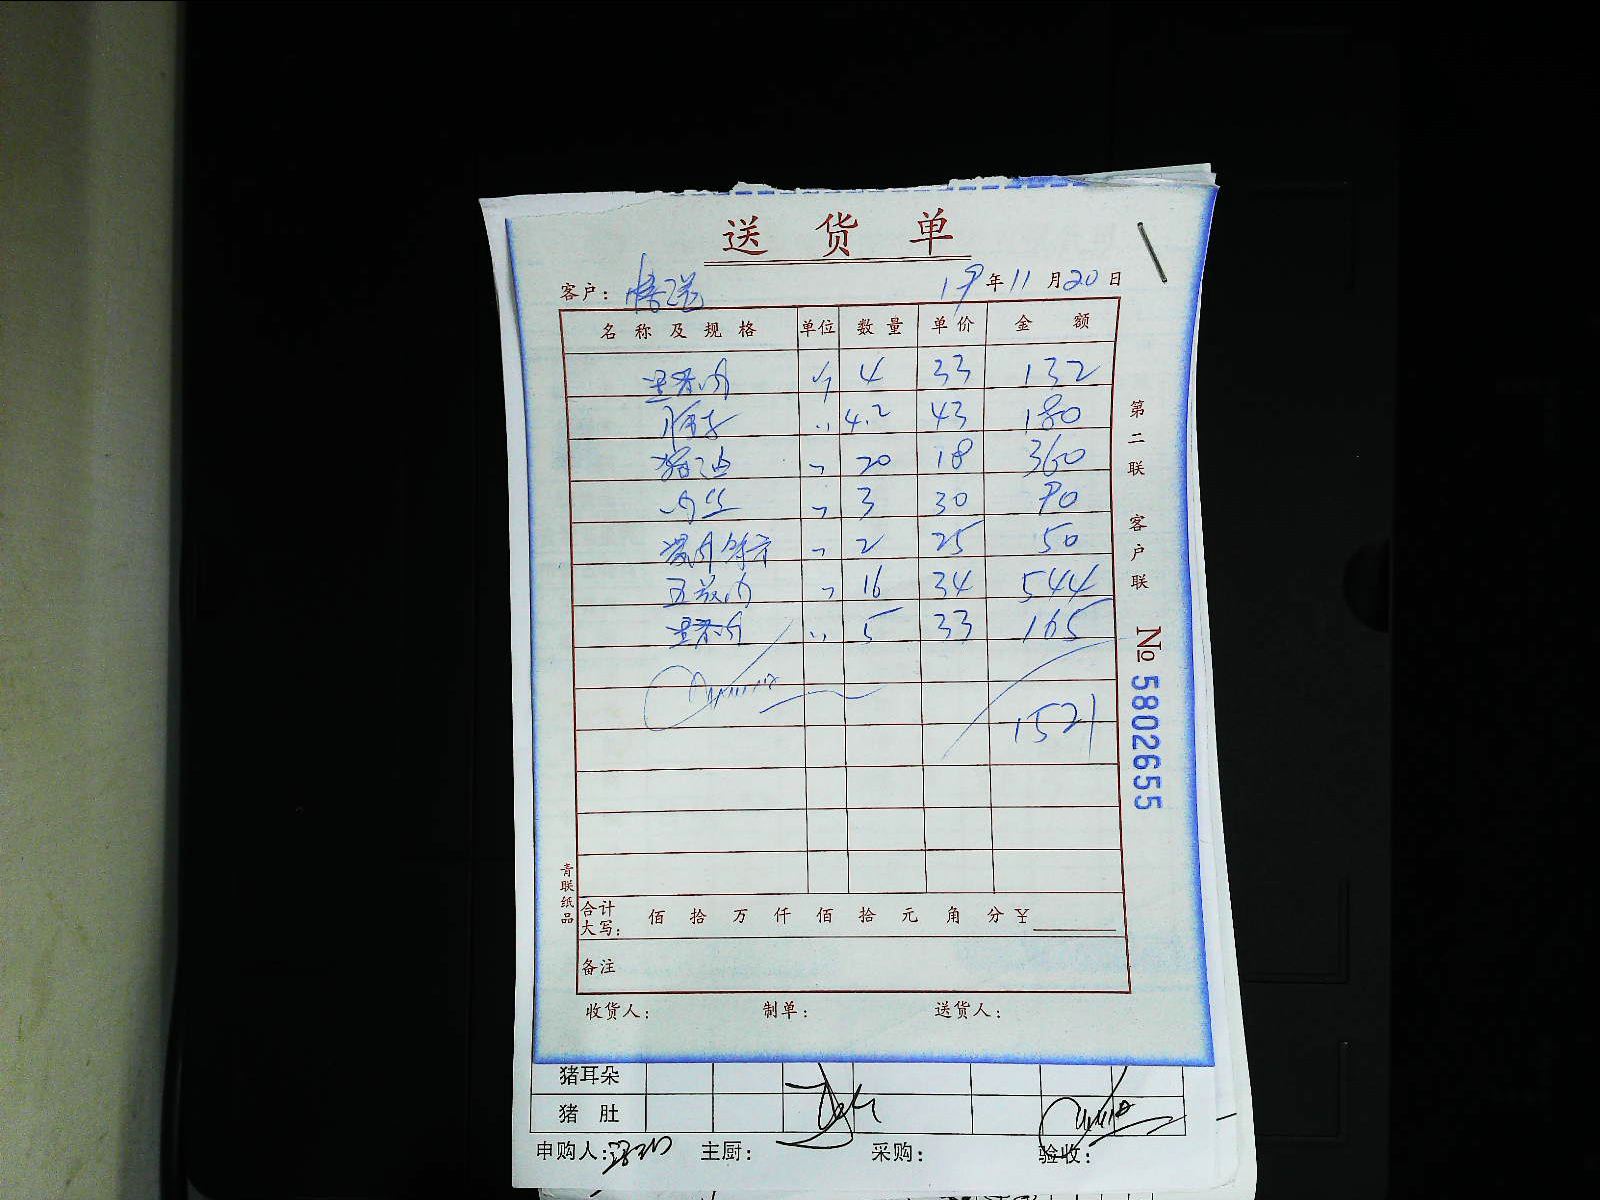 送货单
客户： 19年11月20日
名称及规格 单位 数量 单价 金额
里脊肉 斤 4 33 132
4.2 43 180
猪油 〃 20 18 360
肉丝 〃 3 30 90
〃 2 25 50
五花肉 〃 16 34 544
里脊肉 〃 5 33 165
1521
合计大写： 佰 拾 万 仟 佰 拾 元 角 分 ¥
备注
收货人： 制单： 送货人：
第二联 客户联
№ 5802655
青联纸品
猪耳朵
猪肚
申购人： 主厨： 采购： 验收：